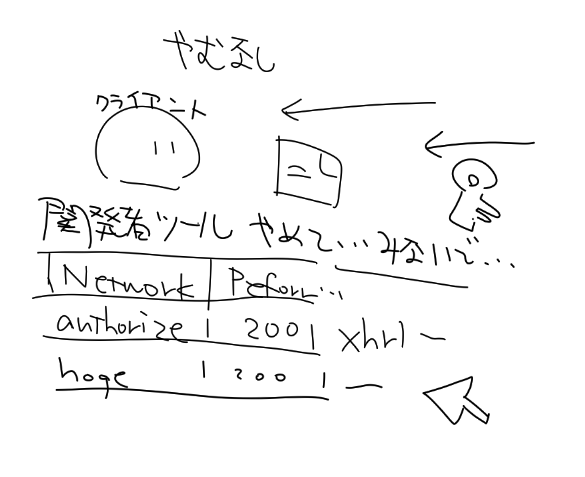 やむなし
クライアント
開発者ツール やめて…みないで…
Network | Preforn…
authorize | 200 | xhr | ー
hoge | 200 | ー